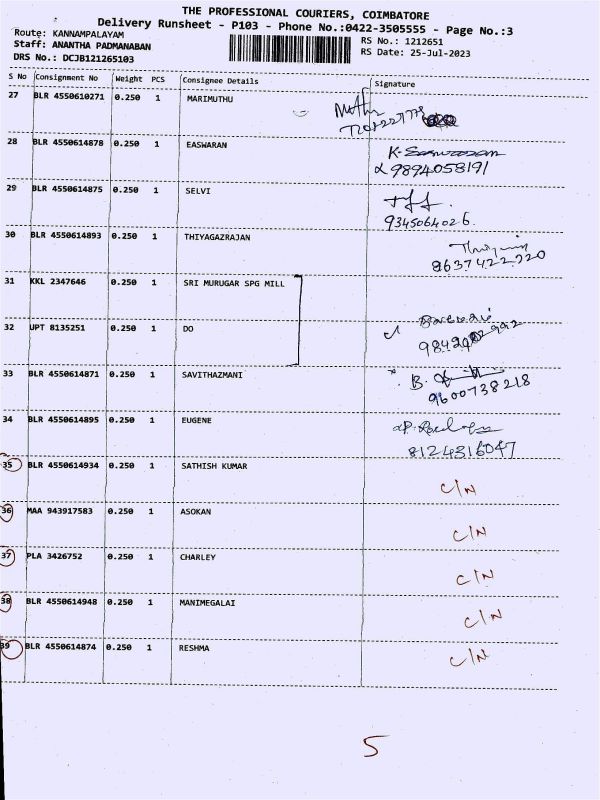 THE PROFESSIONAL COURIERS, COIMBATORE
Delivery Runsheet - P103 - Phone No.:0422-3505555 - Page No.:3
Route: KANNAMPALAYAM
Staff: ANANTHA PADMANABAN
DRS No.: DCJB121265103
RS No.: 1212651
RS Date: 25-Jul-2023
S No Consignment No Weight PCS Consignee Details Signature
27 BLR 4550610271 0.250 1 MARIMUTHU
28 BLR 4550614878 0.250 1 EASWARAN
9894058191
29 BLR 4550614875 0.250 1 SELVI
9345064026
30 BLR 4550614893 0.250 1 THIYAGAZRAJAN
8637422220
31 KKL 2347646 0.250 1 SRI MURUGAR SPG MILL
32 UPT 8135251 0.250 1 DO
33 BLR 4550614871 0.250 1 SAVITHAZMANI
9600738218
34 BLR 4550614895 0.250 1 EUGENE
8124316047
35 BLR 4550614934 0.250 1 SATHISH KUMAR C/N
36 MAA 943917583 0.250 1 ASOKAN C/N
37 PLA 3426752 0.250 1 CHARLEY C/N
38 BLR 4550614948 0.250 1 MANIMEGALAI C/N
39 BLR 4550614874 0.250 1 RESHMA C/N
5